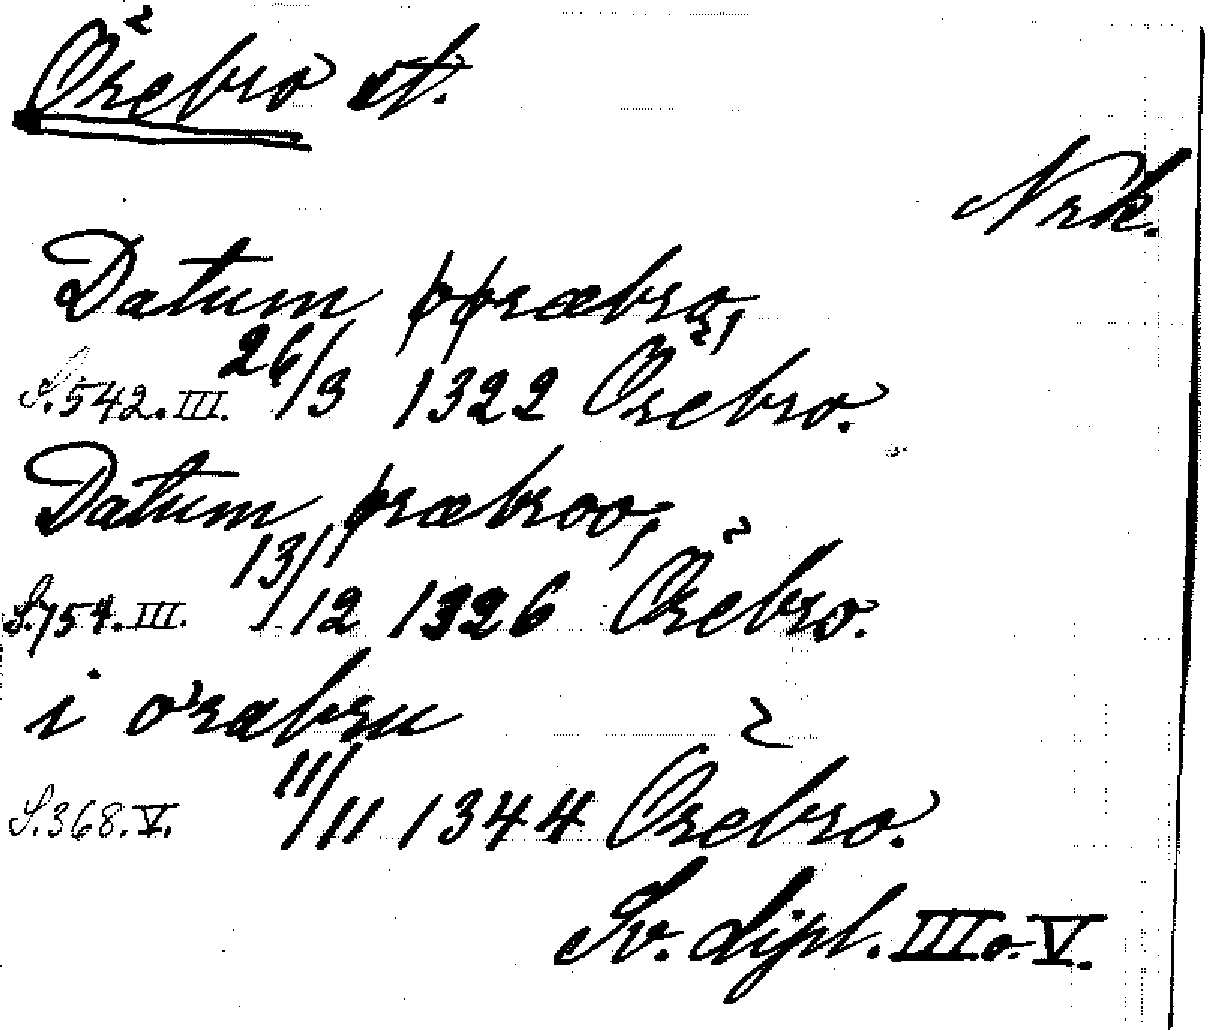 Örebro st.
Nrk.
Datum øøræbro,
S. 542. III. 26/3 1322 Örebro.
Datum øræbroo,
S. 754. III. 13/12 1326 Örebro.
i orabru
S. 368. V. 11/11 1344 Örebro.
Sv. dipl. III o. V.